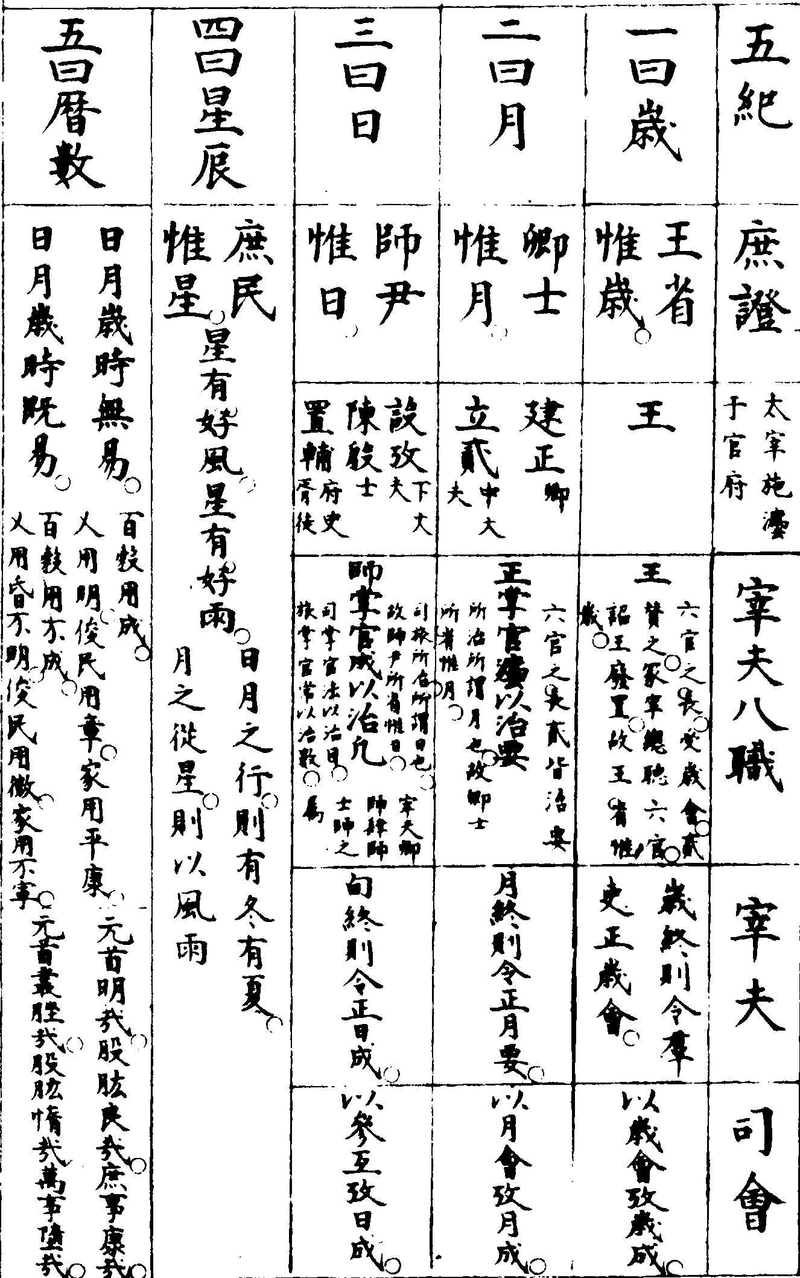 五紀
庶證
太宰施灋
于官府
宰夫八職
宰夫
司會
一曰歲
王省
惟歲
王
王
六官之長受歲會貳
贊之冢宰總聽六官
詔王廢置故王省惟
歲
歲終則令羣
吏正歲會
以歲會攷歲成
二曰月
卿士
惟月
建正卿
立貳中大
夫
正掌官灋以治要
六官之長貳皆治要
所治所謂月也故卿士
所省惟月
月終則令正月要
以月會攷月成
三曰日
師尹
惟日
設攷下大
夫
陳殷士
置輔府史
胥徒
師掌官成以治凡
司掌官法以治目
旅掌官常以治數
司旅所治所謂日也
故師尹所省惟日
宰夫鄉
師肆師
士師之
屬
旬終則令正日成
以參互攷日成
四曰星辰
庶民
惟星
星有好風星有好雨
日月之行則有冬有夏
月之從星則以風雨
五曰曆數
日月歲時無易
百穀用成
乂用明俊民用章家用平康
元首明哉股肱良哉庶事康哉
日月歲時既易
百穀用不成
乂用昏不明俊民用微家用不寧
元首叢脞哉股肱惰哉萬事墮哉